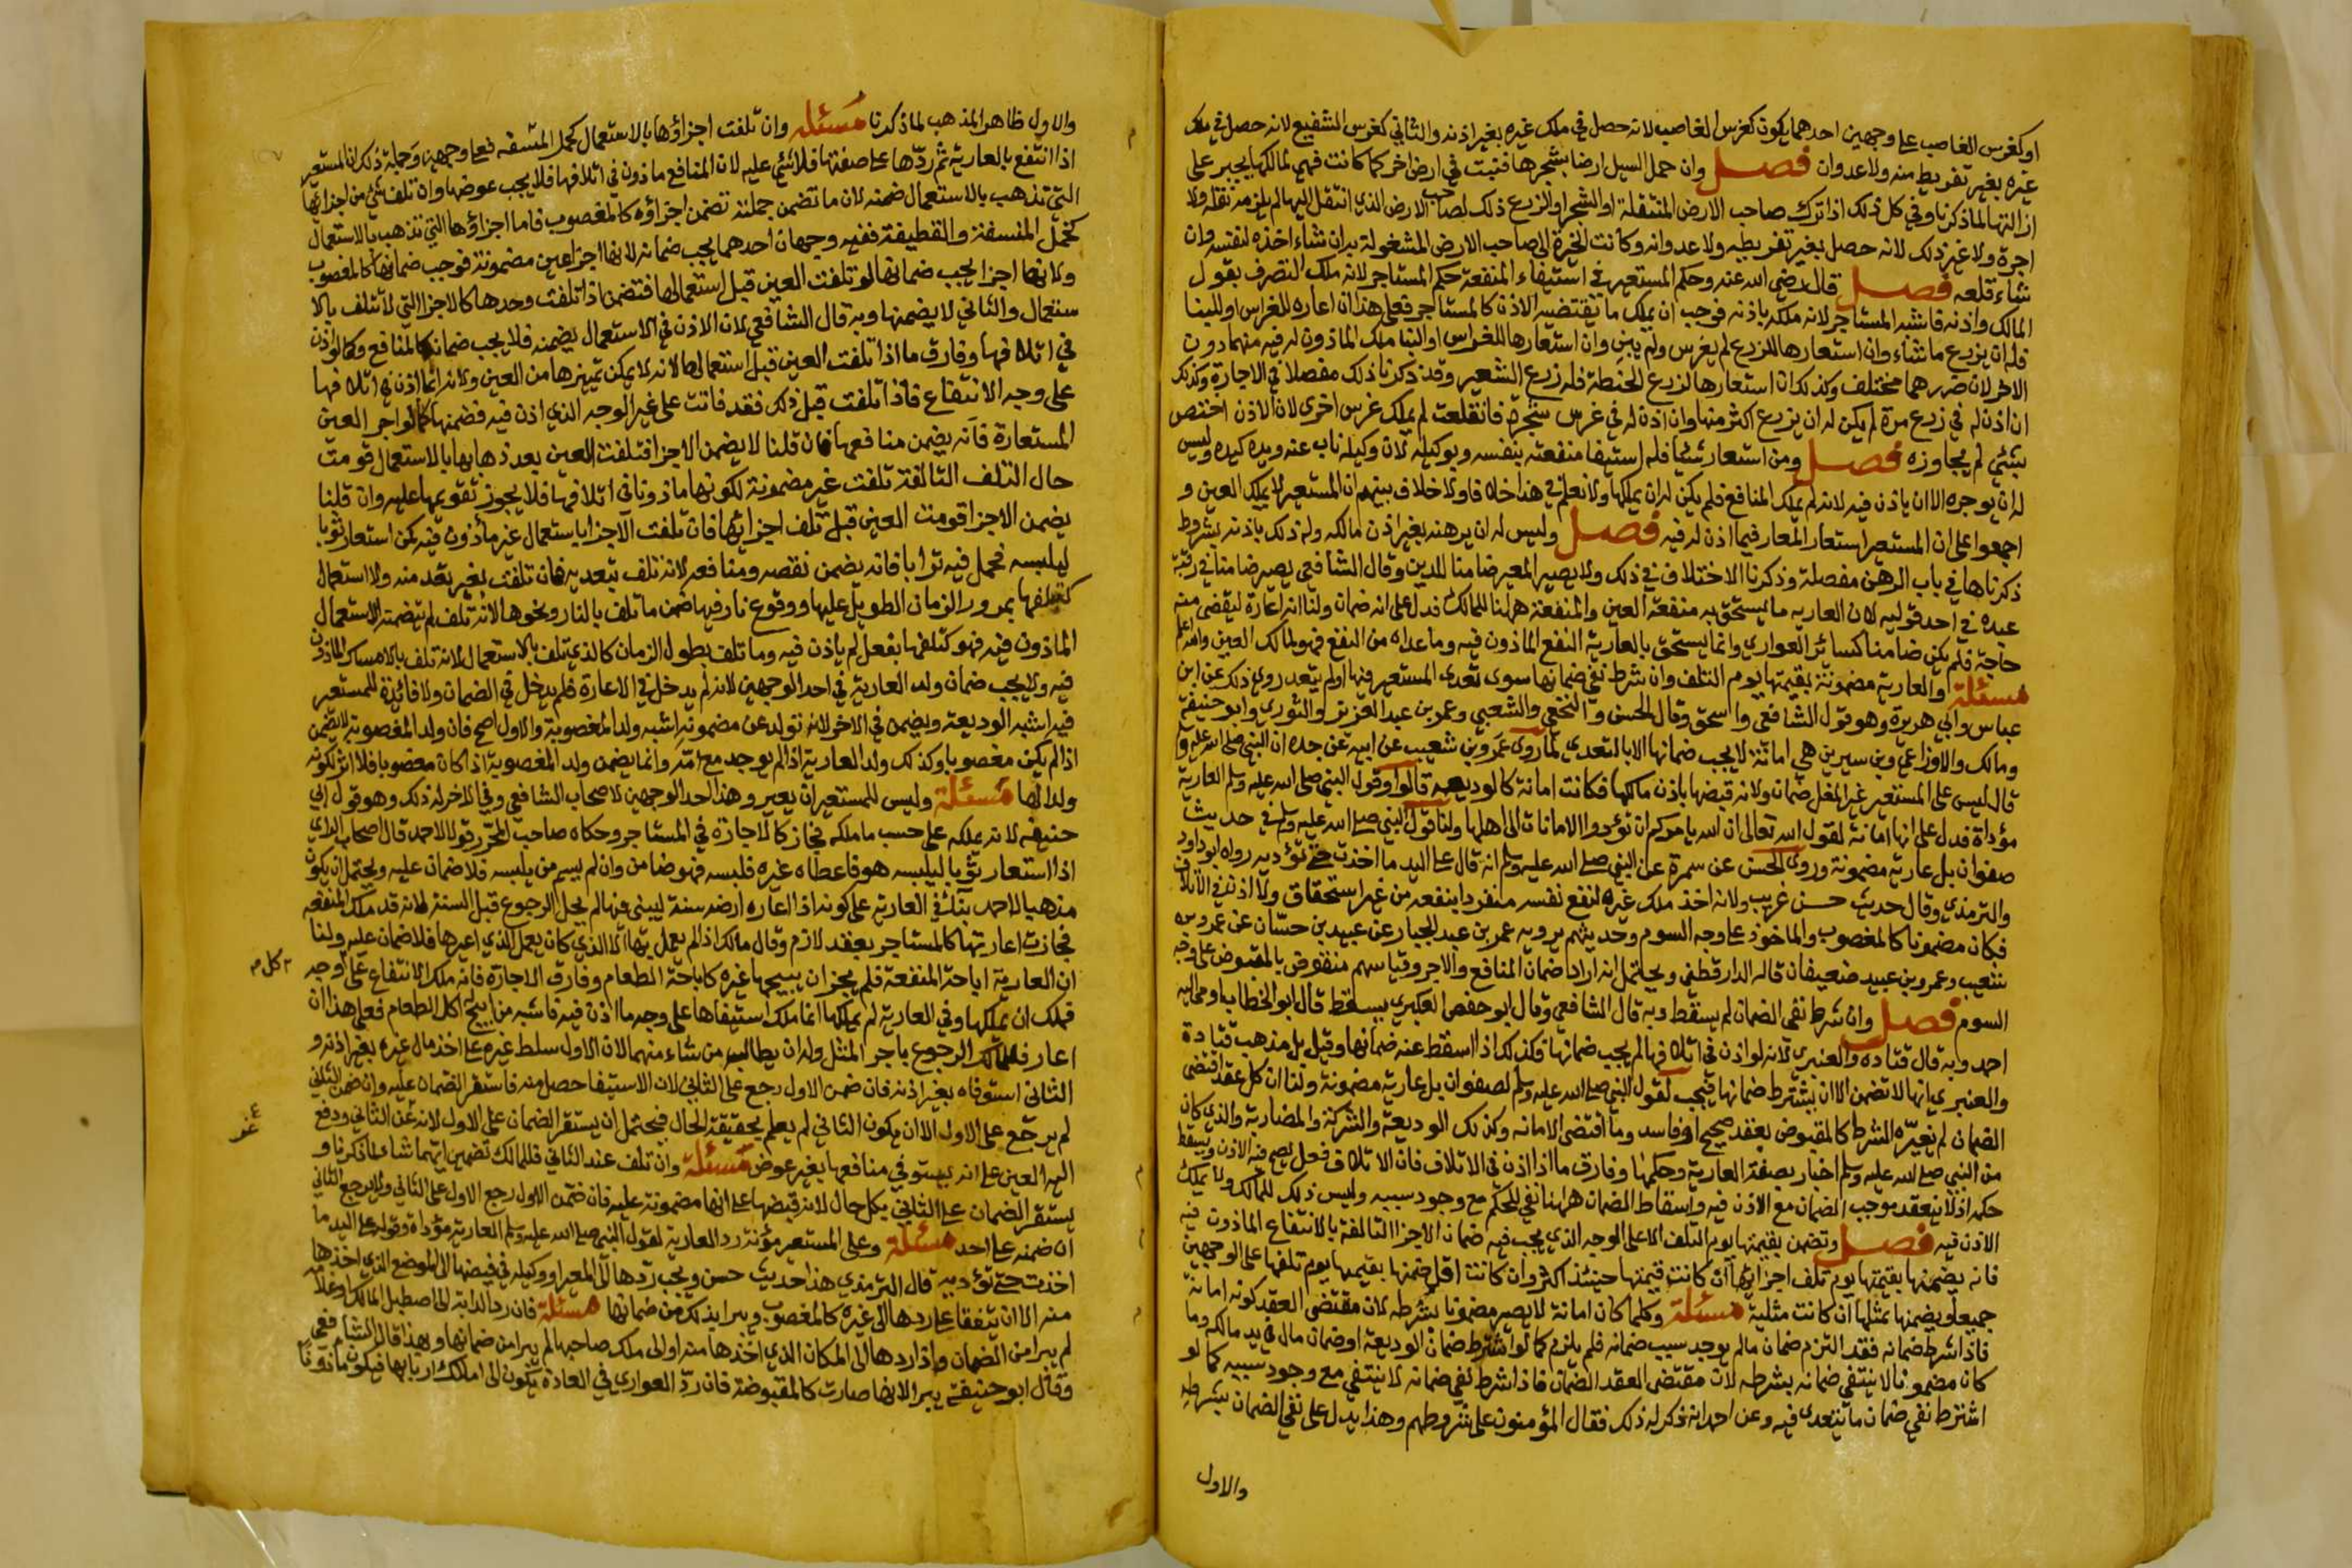 او كغرس الغاصب على وجهين احدهما يكون كغرس الغاصب لانه حصل في ملك غيره بغير اذنه والثاني كغرس الشفيع لانه حصل في ملك
غيره بغير تفريط منه ولا عدوان فصل وان حمل السيل ارضا بشجرها فنبتت في ارض اخر كما كانت فهي لمالكها يجبر على
ازالتها لما ذكرنا وفي كل ذلك اذا ترك صاحب الارض المنتقلة او الشجر او الزرع ذلك لصاحب الارض الذي انتقل اليها لم يلزمه نقله ولا
اجرة ولا غير ذلك لانه حصل بغير تفريطه ولا عدوانه وكانت الخيرة الى صاحب الارض المشغولة به ان شاء اخذه لنفسه وان
شاء قلعه فصل قال رضي الله عنه وحكم المستعير في استيفاء المنفعة حكم المستاجر لانه ملك التصرف بقول
المالك واذنه فاشبه المستاجر لانه ملكه باذنه فوجب ان يملك ما يقتضيه الاذن كالمستاجر فعلى هذا ان اعاره للغراس او للبنا
فله ان يزرع ما شاء وان استعارها للزرع لم يغرس ولم يبن وان استعارها للغراس او البنا ملك الماذون له فيه منهما دون
الاخر لان ضررهما مختلف وكذلك ان استعارها لزرع الحنطة فله زرع الشعير وقد ذكرنا ذلك مفصلا في الاجارة وكذلك
ان اذن له في زرع مرة لم يكن له ان يزرع اكثر منها وان اذن له في غرس شجرة فانقلعت لم يملك غرس اخرى لان الاذن اختص
بشئ لم يجاوزه فصل ومن استعار شيئا فله استيفا منفعته بنفسه وبوكيله لان وكيله ناب عنه ويده كيده وليس
له ان يوجره الا ان ياذن فيه لانه لم يملك المنافع فلم يكن له ان يملكها ولا نعلم في هذا خلافا ولا خلاف بينهم ان المستعير لا يملك العين و
اجمعوا على ان المستعير استعار المعار فيما اذن له فيه فصل وليس له ان يرهنه بغير اذن مالكه وله ذلك باذنه بشروط
ذكرناها في باب الرهن مفصلة وذكرنا الاختلاف في ذلك ولا يصير المعير ضامنا للدين وقال الشافعي يصير ضامنا في رقبة
عبده في احد قوليه لان العاريه ما يستحق به منفعة العين والمنفعة ههنا للمالك فدل على انه ضمان ولنا انه اعارة ليقضي منه
حاجة فلم يكن ضامنا كسائر العواري وانما يستحق بالعارية النفع الماذون فيه وما عداه من النفع فهو لمالك العين والله اعلم
مسئلة والعارية مضمونة بقيمتها يوم التلف وان شرط نفي ضمانها سوى تعدى المستعير فيها اولم يتعد روي ذلك عن ابن
عباس وابي هريرة وهو قول الشافعي واسحق وقال الحسن والنخعي والشعبي وعمر بن عبد العزيز والثوري وابو حنيفة
ومالك والاوزاعي وبن سيرين هي امانة لا يجب ضمانها الا بالتعدي لما روى عمرو بن شعيب عن ابيه عن جده ان النبي صلى الله عليه و
قال ليس على المستعير غير المغل ضمان ولانه قبضها باذن مالكها فكانت امانة كالوديعه قالوا وقول النبي صلى الله عليه وسلم العارية
مؤداة فدل على انها امانة لقول الله تعالى ان الله يامركم ان تؤدوا الامانات الى اهلها ولنا قول النبي صلى الله عليه وسلم في حديث
صفوان بل عارية مضمونة وروى الحسن عن سمرة عن النبي صلى الله عليه وسلم انه قال على اليد ما اخذت حتى تؤديه رواه ابو داود
والترمذي وقال حديث حسن غريب ولانه اخذ ملك غيره لنفع نفسه منفردا بنفعه من غير استحقاق ولا اذن في الاتلاف
فكان مضمونا كالمغصوب والماخوذ على وجه السوم وحديثهم يرويه عمر بن عبد الجبار عن عبيد بن حسان عن عمرو بن
شعيب وعمرو بن عبيد ضعيفان قاله الدارقطني ويحتمل انه اراد ضمان المنافع والاجر وقياسهم منقوض بالمقبوض على وجه
السوم فصل وان شرط نفي الضمان لم يسقط وبه قال الشافعي وقال ابو حفص العكبري يسقط قال ابو الخطاب اوما اليه
احمد وبه قال قتاده والعنبري لانه لو اذن في اتلافها لم يجب ضمانها فكذلك اذا اسقط عنه ضمانها وقيل بل مذهب قتادة
والعنبري انها لا تضمن الا ان يشترط ضمانها فيجب لقول النبي صلى الله عليه وسلم لصفوان بل عارية مضمونة ولنا ان كل عقد اقتضى
الضمان لم يغيره الشرط كالمقبوض بعقد صحيح او فاسد وما اقتضى الامانه وكذلك الوديعة والشركة والمضاربة والذي كان
من النبي صلى الله عليه وسلم اخبار بصفة العارية وحكمها وفارق ما اذا اذن في الاتلاف فان الاتلاف فعل يصح فيه الاذن ويسقط
حكمه اذ لا ينعقد موجب الضمان مع الاذن فيه واسقاط الضمان ههنا نفي للحكم مع وجود سببه وليس ذلك للمالك ولا يملك
الاذن فيه فصل وتضمن بقيمتها يوم التلف الا على الوجه الذي يجب فيه ضمان الاجزا التالفة بالانتفاع الماذون فيه
فانه يضمنها بقيمتها يوم تلف اجزائها ان كانت قيمتها حينئذ اكثر وان كانت اقل ضمنها بقيمتها يوم تلفها على الوجهين
جميعا ويضمنها بمثلها ان كانت مثلية مسئلة وكلما كان امانة لا يصير مضمونا بشرطه لان مقتضى العقد كونه امانة
فاذا شرط ضمانه فقد التزم ضمان مالم يوجد سبب ضمانه فلم يلزم كما لو اشترط ضمان الوديعة او ضمان مال في يد مالكه وما
كان مضمونا لا ينتفي ضمانه بشرطه لان مقتضى العقد الضمان فاذا شرط نفي ضمانه لا ينتفي مع وجود سببه كما لو
اشترط نفي ضمان ما يتعدى فيه وعن احمد انه ذكر له ذلك فقال المؤمنون على شروطهم وهذا يدل على نفي الضمان بشرطه
والاول
والاول ظاهر المذهب لما ذكرنا مسئله وان تلفت اجزاؤها بالاستعمال كخمل المنشفه فعلى وجهين وجملة ذلك ان المستعير
اذا انتفع بالعارية ثم ردها على صفتها فلا شئ عليه لان المنافع ماذون في اتلافها فلا يجب عوضها وان تلف شئ من اجزائها
التي تذهب بالاستعمال ضمنه لان ما تضمن جملته تضمن اجزاؤه كالمغصوب فاما اجزاؤها التي تذهب بالاستعمال
كخمل المنشفة والقطيفة ففيه وجهان احدهما يجب ضمانه لانها اجزا عين مضمونة فوجب ضمانها كالمغصوب
ولانها اجزا يجب ضمانها لو تلفت العين قبل استعمالها فتضمن اذا تلفت وحدها كالاجزا التي لا تتلف بالا
ستعمال والثاني لا يضمنها وبه قال الشافعي لان الاذن في الاستعمال يضمنه فلا يجب ضمانه كالمنافع وكما لو اذن
في اتلافها وفارق ما اذا تلفت العين قبل استعمالها لانه لا يمكن تمييزها من العين ولانه انما اذن في اتلافها
على وجه الانتفاع فاذا تلفت قبل ذلك فقد فاتت على غير الوجه الذي اذن فيه فضمنها كما لو اجر العين
المستعارة فانه يضمن منافعها فان قلنا لا يضمن الاجزا فتلفت العين بعد ذهابها بالاستعمال قومت
حال التلف التالفة تلفت غير مضمونة لكونها ماذونا في اتلافها فلا يجوز تقويمها عليه وان قلنا
يضمن الاجزا قومت العين قبل تلف اجزائها فان تلفت الاجزا باستعمال غير مأذون فيه كمن استعار ثوبا
ليلبسه فحمل فيه ترابا فانه يضمن نقصه ومنافعه لانه تلف بتعديه فان تلفت بغير تعد منه ولا استعمال
كتلفها بمرور الزمان الطويل عليها ووقوع نار فيها ضمن ما تلف بالنار ونحوها لانه تلف لم يتضمنه الاستعمال
الماذون فيه فهو كتلفها بفعل لم ياذن فيه وما تلف بطول الزمان كالذي تلف بالاستعمال لانه تلف بالامساك الماذون
فيه ولا يجب ضمان ولد العارية في احد الوجهين لانه لم يدخل في الاعارة فلم يدخل في الضمان ولا فائدة للمستعير
فيه اشبه الوديعة ويضمن في الاخر لانه تولد عن مضمونة اشبه ولد المغصوبة والاول اصح فان ولد المغصوبة لا يضمن
اذا لم يكن مغصوبا وكذلك ولد العارية اذا لم يوجد مع امه وانما يضمن ولد المغصوبة اذا كان مغصوبا فلا اثر لكونه
ولدا لها مسئلة وليس للمستعير ان يعير وهذا احد الوجهين لاصحاب الشافعي وفي الاخر له ذلك وهو قول ابي
حنيفه لانه يملكه على حسب ما ملكه فجاز كالاجازة في المستاجر وحكاه صاحب المحرر قولا لاحمد قال اصحاب الراي
اذا استعار ثوبا ليلبسه هو فاعطاه غيره فلبسه فهو ضامن وان لم يسم من يلبسه فلا ضمان عليه ويحتمل ان يكون
مذهبا لاحمد بناء في العارية على كونه اذا اعاره ارضه سنة ليبني فيها لم يحل الرجوع قبل السنة لانه قد ملك المنفعه
فجازت اعارتها كالمستاجر بعقد لازم وقال مالك اذا لم يعمل بها الا الذي كان يعمل الذي اعيرها فلا ضمان عليه ولنا
ان العارية اباحة المنفعة فلم يجز ان يبيحها غيره كاباحة الطعام وفارق الاجارة فانه ملك الانتفاع على وجه
كل م
فملك ان يملكها وفي العارية لم يملكها انما ملك استيفاها على وجه ما اذن فيه فاشبه من ابيح له اكل الطعام فعلى هذا ان
اعار فللمالك الرجوع باجر المثل وله ان يطالب من شاء منهما لان الاول سلط غيره على اخذ مال غيره بغير اذنه و
الثاني استوفاه بغير اذنه فان ضمن الاول رجع على الثاني لان الاستيفا حصل منه فاستقر الضمان عليه وان ضمن الثاني
لم يرجع على الاول الا ان يكون الثاني لم يعلم بحقيقة الحال فيحتمل ان يستقر الضمان على الاول لانه غر الثاني ودفع
اليه العين على انه يستوفي منافعها بغير عوض مسئلة وان تلف عند الثاني فللمالك تضمين ايهما شاء لما ذكرنا و
يستقر الضمان على الثاني بكل حال لانه قبضها على انها مضمونة عليه فان ضمن الاول رجع الاول على الثاني ولا يرجع الثاني
ان ضمنه على احد مسئلة وعلى المستعير مؤنة رد العارية لقول النبي صلى الله عليه وسلم العارية مؤداة وقوله على اليد ما
اخذت حتى تؤديه قال الترمذي هذا حديث حسن ويجب ردها الى المعير او وكيله في قبضها الى الموضع الذي اخذها
منه الا ان يتفقا على ردها الى غيره كالمغصوب ويبرا بذلك من ضمانها مسئلة فان رد الدابة الى اصطبل المالك او غلامه
لم يبرا من الضمان واذا ردها الى المكان الذي اخذها منه او الى ملك صاحبها لم يبرا من ضمانها وبهذا قال الشافعي
وقال ابو حنيفة يبرا لانها صارت كالمقبوضة فان رد العواري في العادة يكون الى املاك اربابها فيكون ماذونا